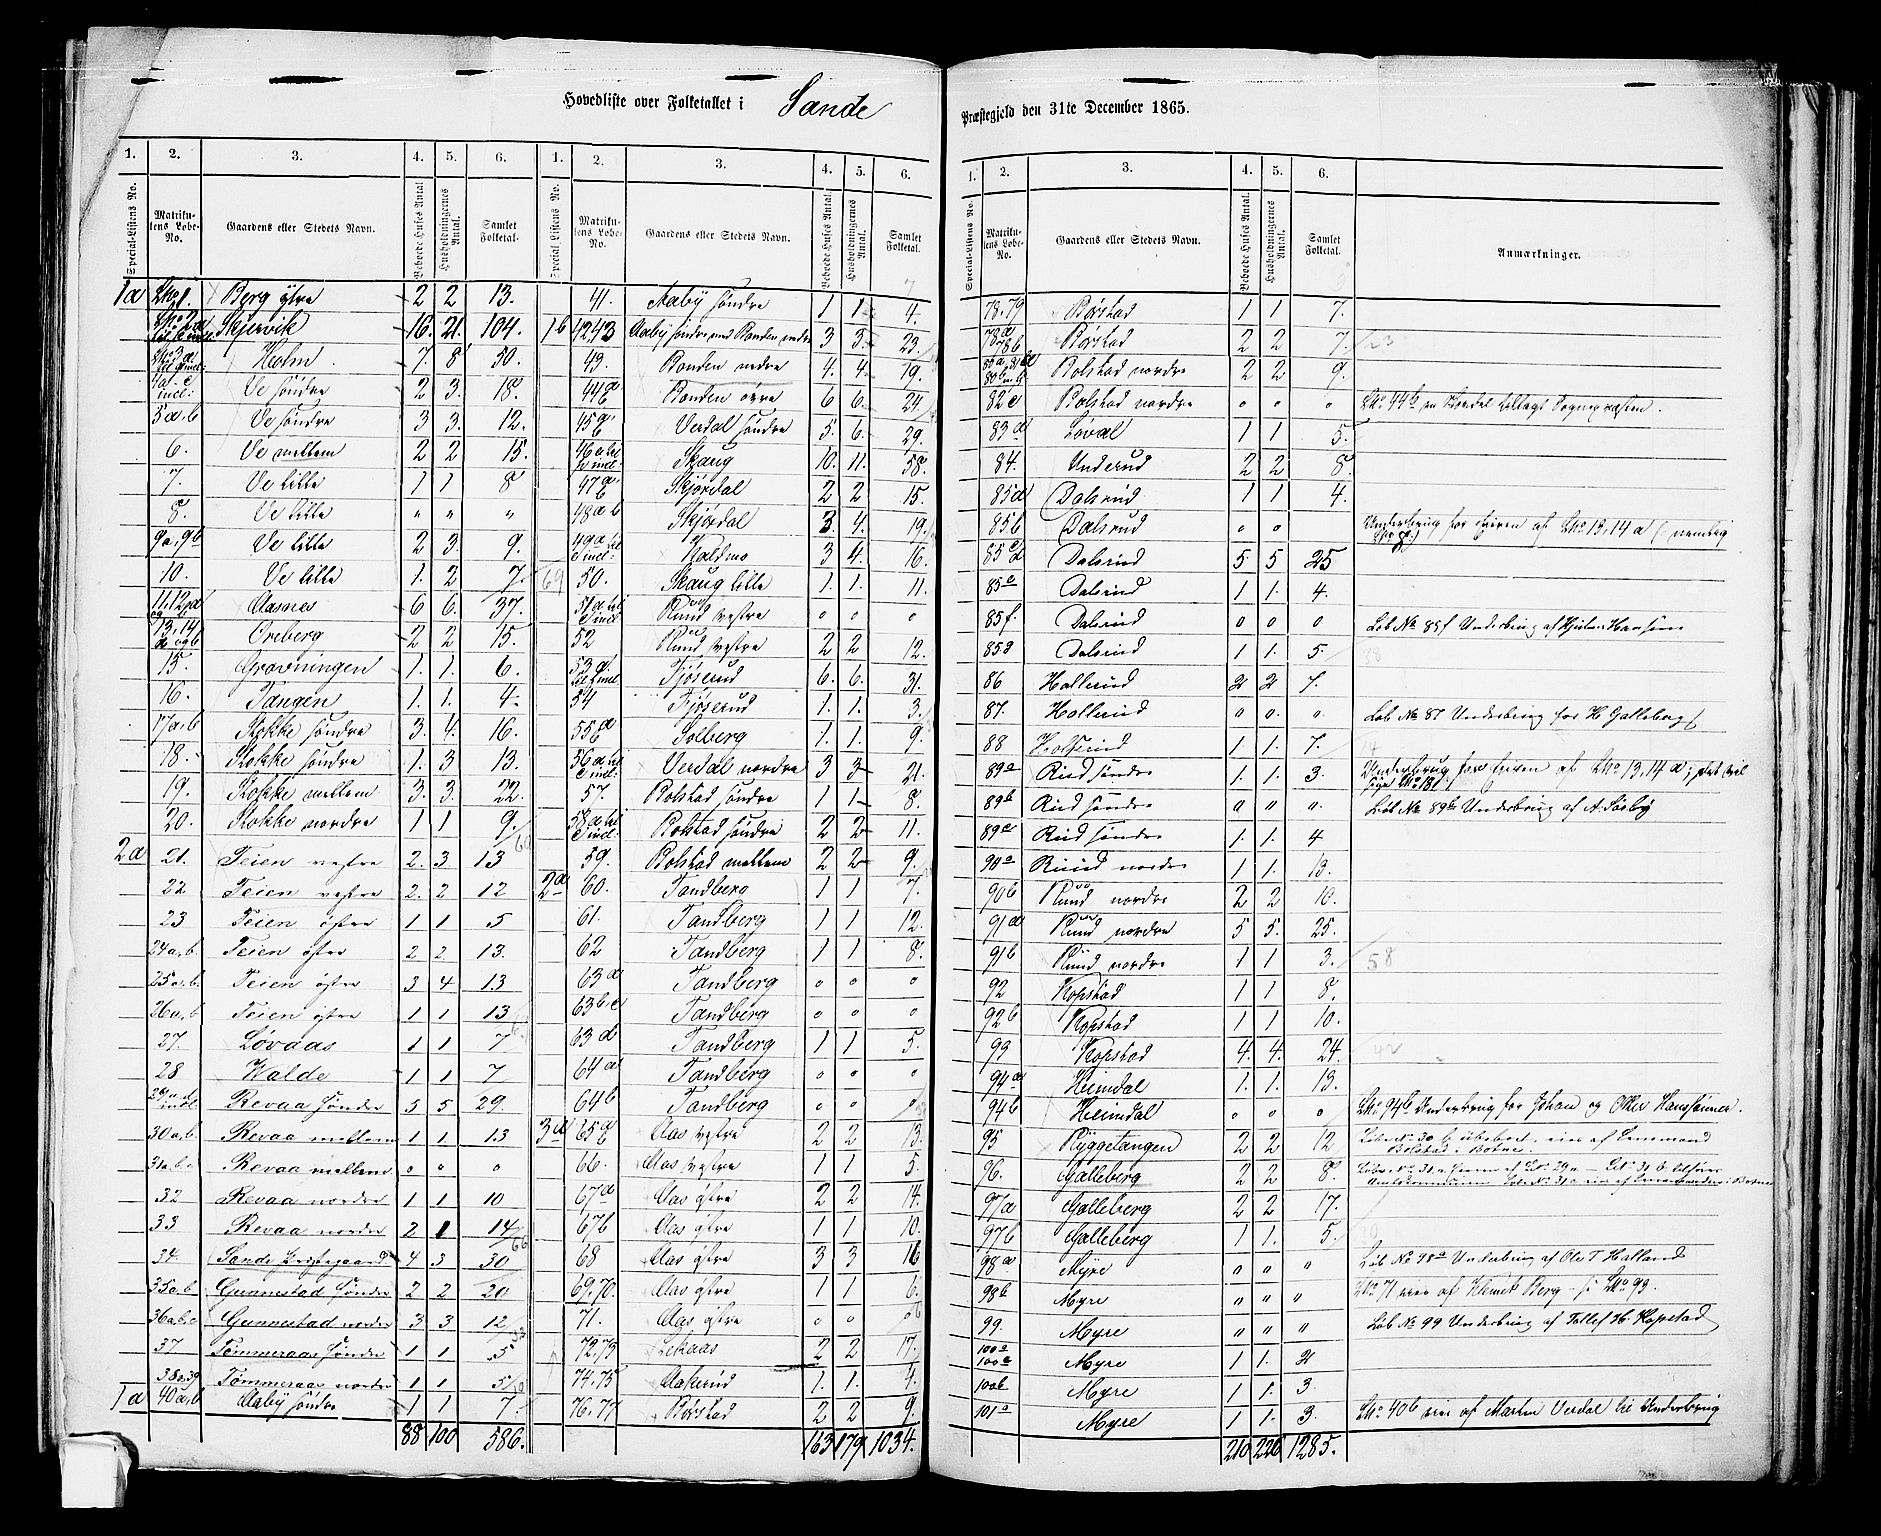 Hovedliste over Folketallet i Sande Præstegjeld den 31te December 1865.
1. 2. 3. 4. 5. 6. 1. 2. 3. 4. 5. 6.
Special-Listens No. Matrikulens Løbe-No. Gaardens eller Stedets Navn. Beboede Huses Antal. Husholdningernes Antal. Samlet Folketal. Special Listens No. Matrikulens Løbe-No. Gaardens eller Stedets Navn. Beboede Huses Antal. Husholdningernes Antal. Samlet Folketal
1a 1. Berg ytre 2 2 13. 41. Aaby søndre 1 1 4.
Skjervik 16. 21. 104. 1b 42,43 Aaby søndre med Bonden nedre 3 3. 23.
Holm 7. 8 50. 43. Bonden nedre 4. 4. 19.
4a-c incl: Ve søndre 2 3. 18. 44 Bonden øvre 6 6. 24.
5a,b Ve søndre 3 3. 12. 45 Verdal søndre 5. 6. 29.
6. Ve mellem 2 2 15. 46 Skaug 10. 11. 58.
7. Ve lille 1 1 8 47 Skjørdal 2 2 15.
8. Ve lille " " " 48ab Skjørdal 3 4. 19.
9a,9b Ve lille 2 3. 9. 49a 3 4. 16.
10. Ve lille 1. 2 7. 50. Skaug lille 1. 1. 11.
11,12 Aasnes 6 6. 37. 51 Ruud vestre o o o
13,14 a og b Oreberg 2 2 15. 52 Ruud vestre 2 2 12.
15. Gravningen 1. 1. 6. 53a Fjøserud 6. 6. 31.
16. Tangen 1. 1. 4. 54 Fjøserud 1. 1. 3.
17a,b Stokke søndre 3. 4. 16. 55 Solberg 1. 1. 9.
18. Stokke søndre 1. 3 13. 56 Verdal nordre 3 3 21.
19. Stokke mellem 3. 3. 22. 57. Bolstad søndre 1 1 8.
20. Stokke nordre 1 1 9. 58 Bolstad søndre 2 2 11.
2a 21. Teien vestre 2. 3. 13 59. Bolstad mellem 2 2 9.
22 Teien vestre 2. 2 12 2a 60. Tandberg 1 1 7.
23 Teien östre 1 1 5 61. Tandberg 1 1 12.
24a,b Teien östre 2 2. 13. 62 Tandberg 1 1 8.
25a,b. Teien östre 3 4 13 63a Tandberg o o o
26a,b Teien östre 1 1 13 63b,c Tandberg o o o
27 Løvaas 1 1 7 63d Tandberg 1 1 5.
28 Walde 1 1 7 64a Tandberg o o o
29a-d incl. Revaa søndre 5 5 29. 64b Tandberg o o o
30a,b. Revaa mellem 1 1 13 3a 65 Aas vestre 2 2 13.
31a,b,c Revaa mellem o o o 66. Aas vestre 1 1 5.
32 Revaa nordre 1 1 10 67a Aas østre 2 2 14.
33 Revaa nordre 2 1 14 67b Aas østre 1 1 10.
34. Sande Præstegaard 4 3 30 68 Aas østre 3 3 16
35a,b Gunnestad søndre 2 2 20 69,70. Aas østre 1 1 6.
36a,b,c Gunnestad nordre 3 3 12 71. Aas østre o o o
37 Tømmeraas søndre 1 1 5 72,73 Lekaas 2 2 17.
38a,39 Tømmeraas nordre 1 1 5 74,75 Aakerud 1. 1. 4.
1a 40a,b Aaby søndre 1 1 7. 76,77 Børstad 2 2 9.
88 100 586. 163 179 1034.
1. 2. 3. 4. 5. 6.
Special-Listens No. Matrikulens Løbe-No. Gaardens eller Stedets Navn. Beboede Huses Antal. Husholdningernes Antal. Samlet Folketal. Anmærkninger.
78,79 Børstad 1 1 7.
78a 78b Børstad 2 2 7.
Bolstad nordre 2 2 9.
82c Bolstad nordre o o o Lno 44b en Bordel tillagt Sognepræsten.
83a Løvál 1 1 5.
84. Underud 2 2 8.
85a Dalsrud 1 1 4.
85b Dalsrud o o Underbrug for Eieren af Lno 13,14a (nemlig
85 Dalsrud 5 5 25
85e Dalsrud 1 1. 4.
85f. Dalsrud o o o Løb No 85f Underbrug af Hjelm Hansen
85g Dalsrud 1 1. 5.
86 Hallerud 2 2 7.
87. Hallerud " " " Løb No 87 Underbrug for H Galleberg
88 1 1. 7.
89a Ruud søndre 1. 1. 3. Underbrug for Eieren af Lno 13,14a; det vil sige Lno 181
89b Ruud søndre " " ". Løb No 89b Underbrug af A. Sørby
89c Ruud søndre 1. 1. 4
90a Ruud nordre 1 1. 13.
90b Ruud nordre 2 2 10.
91a Ruud nordre 5 5. 25.
91b Ruud nordre 1 1 3. 58
92 Kopstad 1 1 8.
92b Kopstad 1 1 10.
93 Kopstad 4. 4. 24. 42
94a Heimdal 1. 1. 13.
94b Heimdal o o o Lno 94b Underbrug for Johan og Otter Hanssønner.
95 Ryggetangen 2 2 12 Løbe No 30 b ubeboet, eies af Lensmand Bolstad i Botne.
96. Galleberg 2 2 8.
97a Galleberg 2 2 17.
97b Galleberg 1 1. 5.
98a Myre " " " Løb No 98a Underbrug af Ole T Halland
98b Myre " " " Lno 71 eies af Klemet Berg - Lno 93.
99. Myre " " " Løb No 99 Underbrug af Tollef H. Kopstad
100a Myre 1 1. 2
100b Myre 1 1. 3.
101a Myre 1 1. 3. Lno 40b eies af Martin Verdal til Underbrug
210 226 1285.